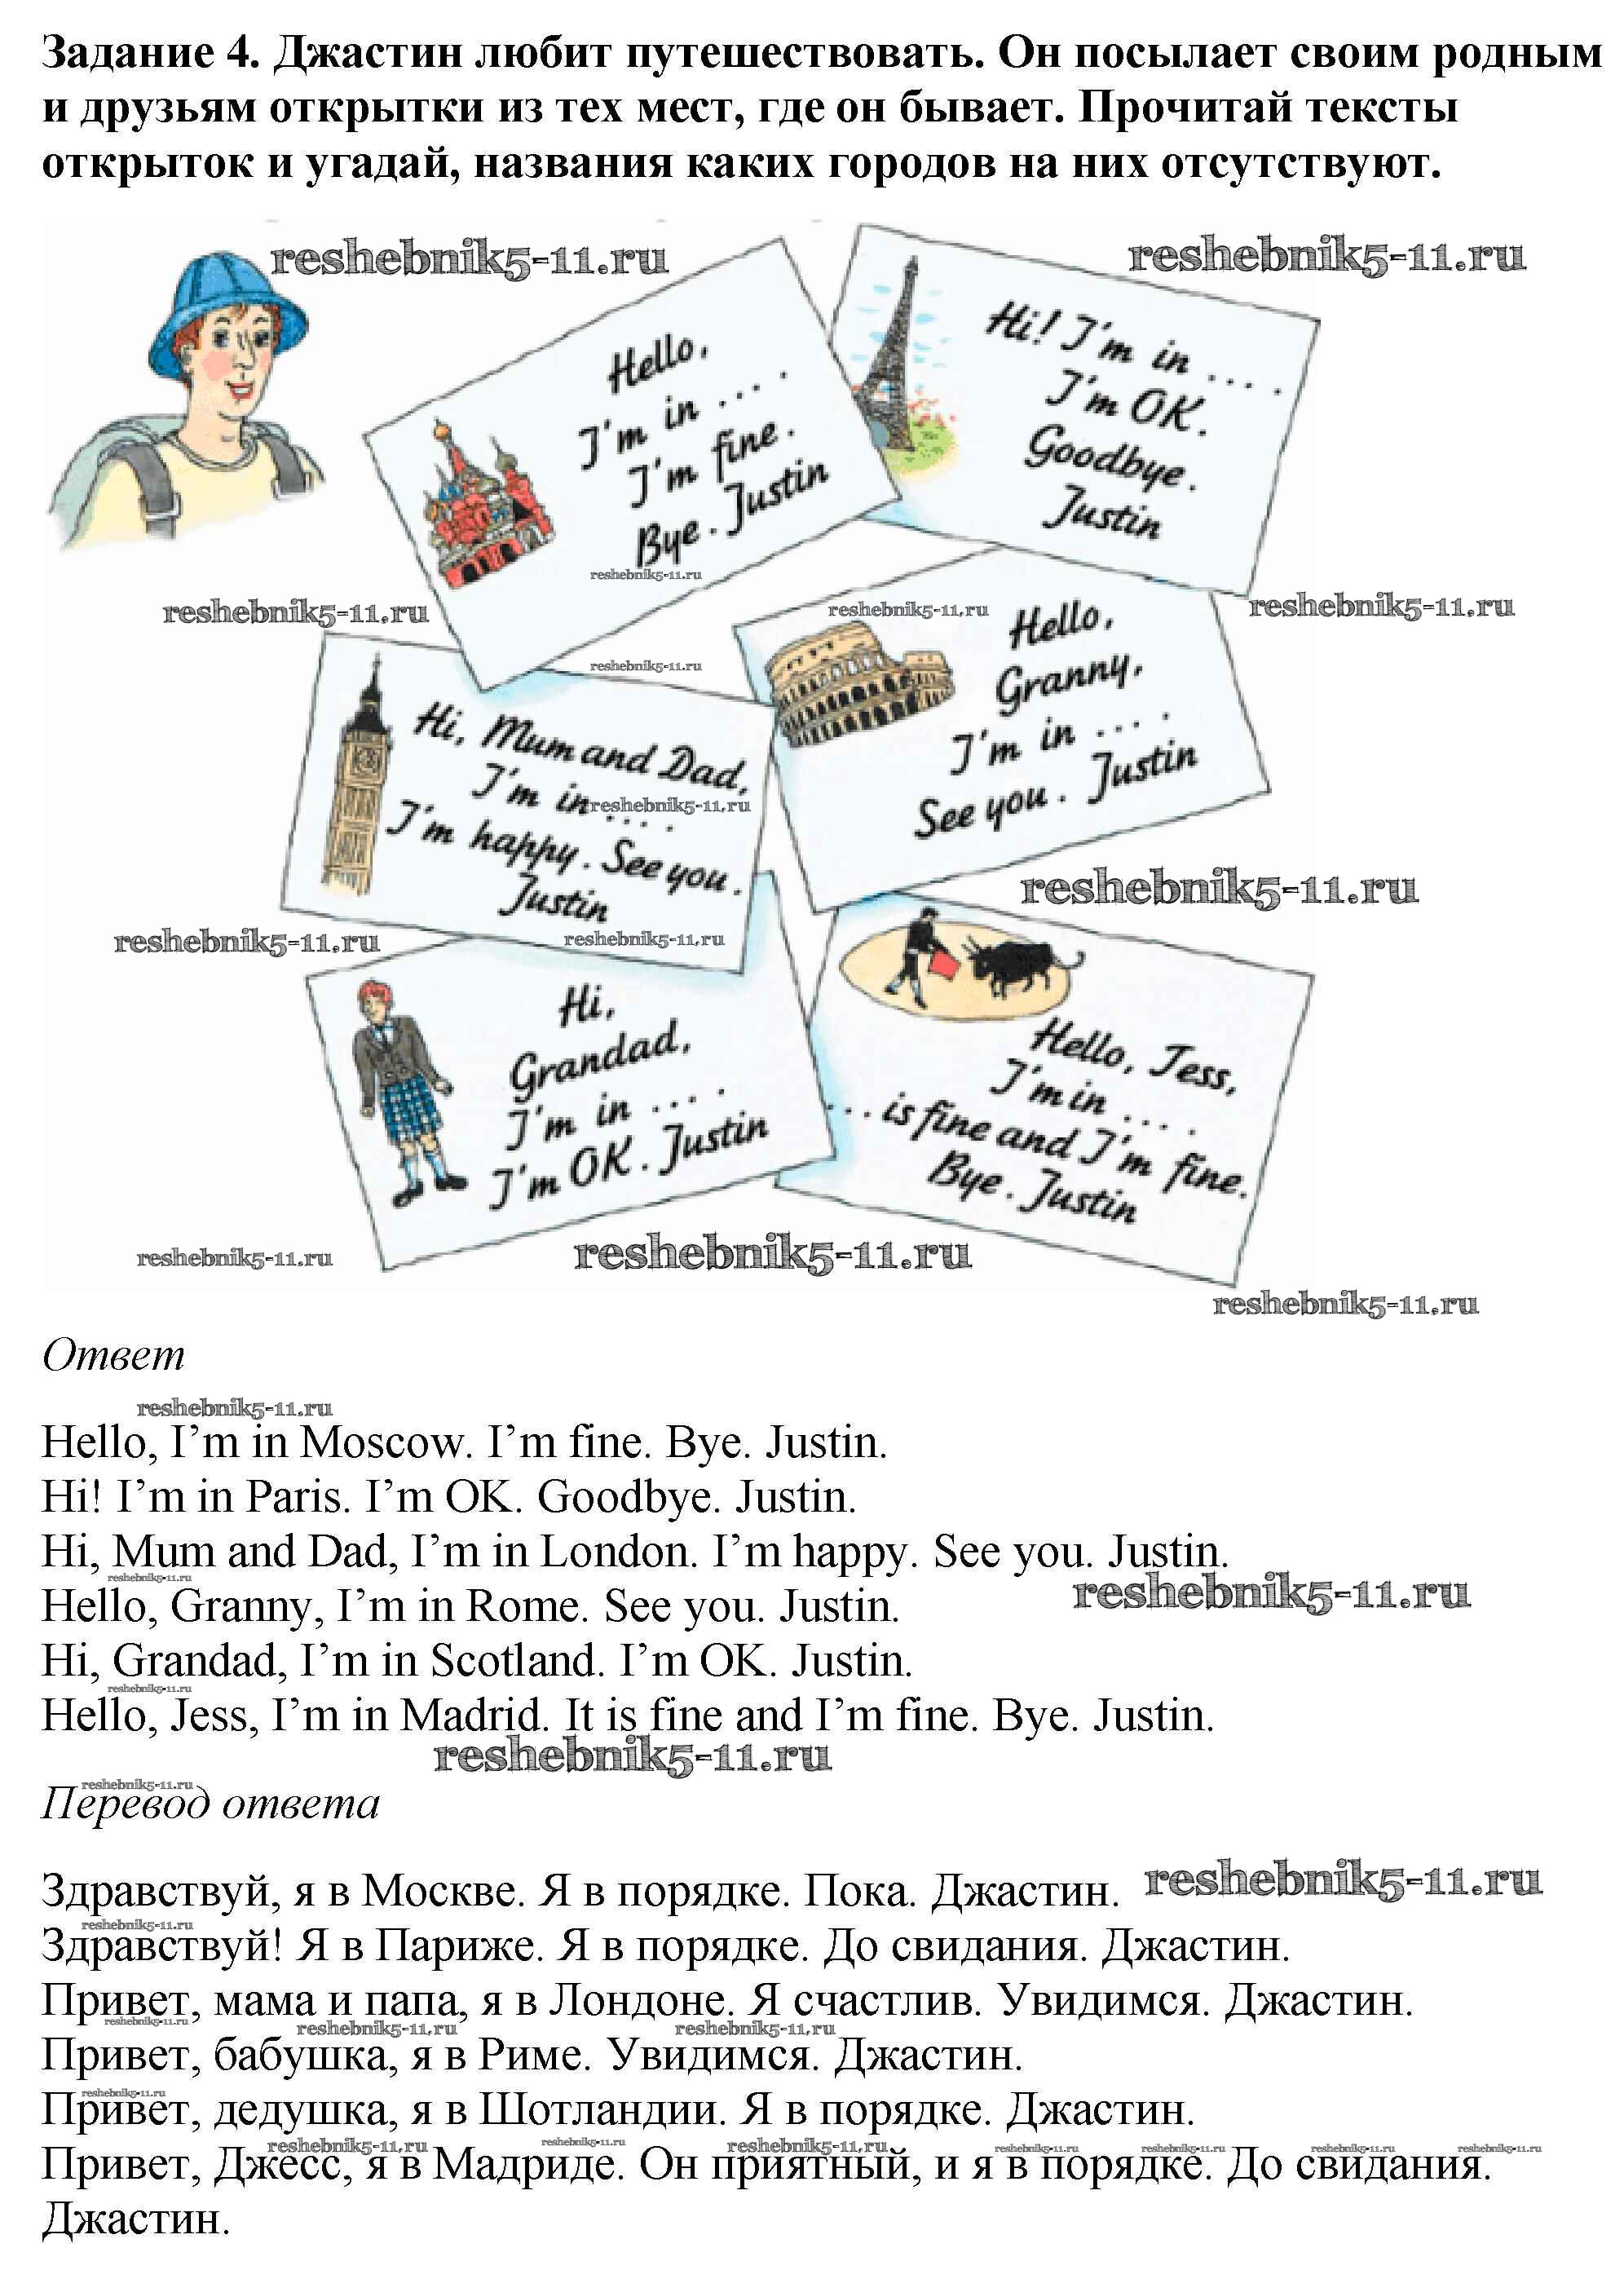 Задание 4. Джастин любит путешествовать. Он посылает своим родным
и друзьям открытки из тех мест, где он бывает. Прочитай тексты
открыток и угадай, названия каких городов на них отсутствуют.
reshebnik5-11.ru
reshebnik5-11.ru
Hello,
I'm in ... .
I'm fine.
Bye. Justin
reshebnik5-11.ru
Hi! I'm in ... .
I'm OK.
Goodbye.
Justin
reshebnik5-11.ru
reshebnik5-11.ru
reshebnik5-11.ru
reshebnik5-11.ru
Hi, Mum and Dad,
I'm in ... .
reshebnik5-11.ru
I'm happy. See you.
Justin
reshebnik5-11.ru
Hello,
Granny,
I'm in ... .
See you. Justin
reshebnik5-11.ru
reshebnik5-11.ru
Hi,
Grandad,
I'm in ... .
I'm OK. Justin
Hello, Jess,
I'm in ... .
... is fine and I'm fine.
Bye. Justin
reshebnik5-11.ru
reshebnik5-11.ru
reshebnik5-11.ru
Ответ
reshebnik5-11.ru
Hello, I’m in Moscow. I’m fine. Bye. Justin.
Hi! I’m in Paris. I’m OK. Goodbye. Justin.
Hi, Mum and Dad, I’m in London. I’m happy. See you. Justin.
reshebnik5-11.ru
reshebnik5-11.ru
Hello, Granny, I’m in Rome. See you. Justin.
Hi, Grandad, I’m in Scotland. I’m OK. Justin.
reshebnik5-11.ru
Hello, Jess, I’m in Madrid. It is fine and I’m fine. Bye. Justin.
reshebnik5-11.ru
reshebnik5-11.ru
Перевод ответа
Здравствуй, я в Москве. Я в порядке. Пока. Джастин.
reshebnik5-11.ru
reshebnik5-11.ru
Здравствуй! Я в Париже. Я в порядке. До свидания. Джастин.
Привет, мама и папа, я в Лондоне. Я счастлив. Увидимся. Джастин.
reshebnik5-11.ru
reshebnik5-11.ru
reshebnik5-11.ru
Привет, бабушка, я в Риме. Увидимся. Джастин.
reshebnik5-11.ru
Привет, дедушка, я в Шотландии. Я в порядке. Джастин.
reshebnik5-11.ru
reshebnik5-11.ru
reshebnik5-11.ru
reshebnik5-11.ru
reshebnik5-11.ru
reshebnik5-11.ru
reshebnik5-11.ru
Привет, Джесс, я в Мадриде. Он приятный, и я в порядке. До свидания.
Джастин.